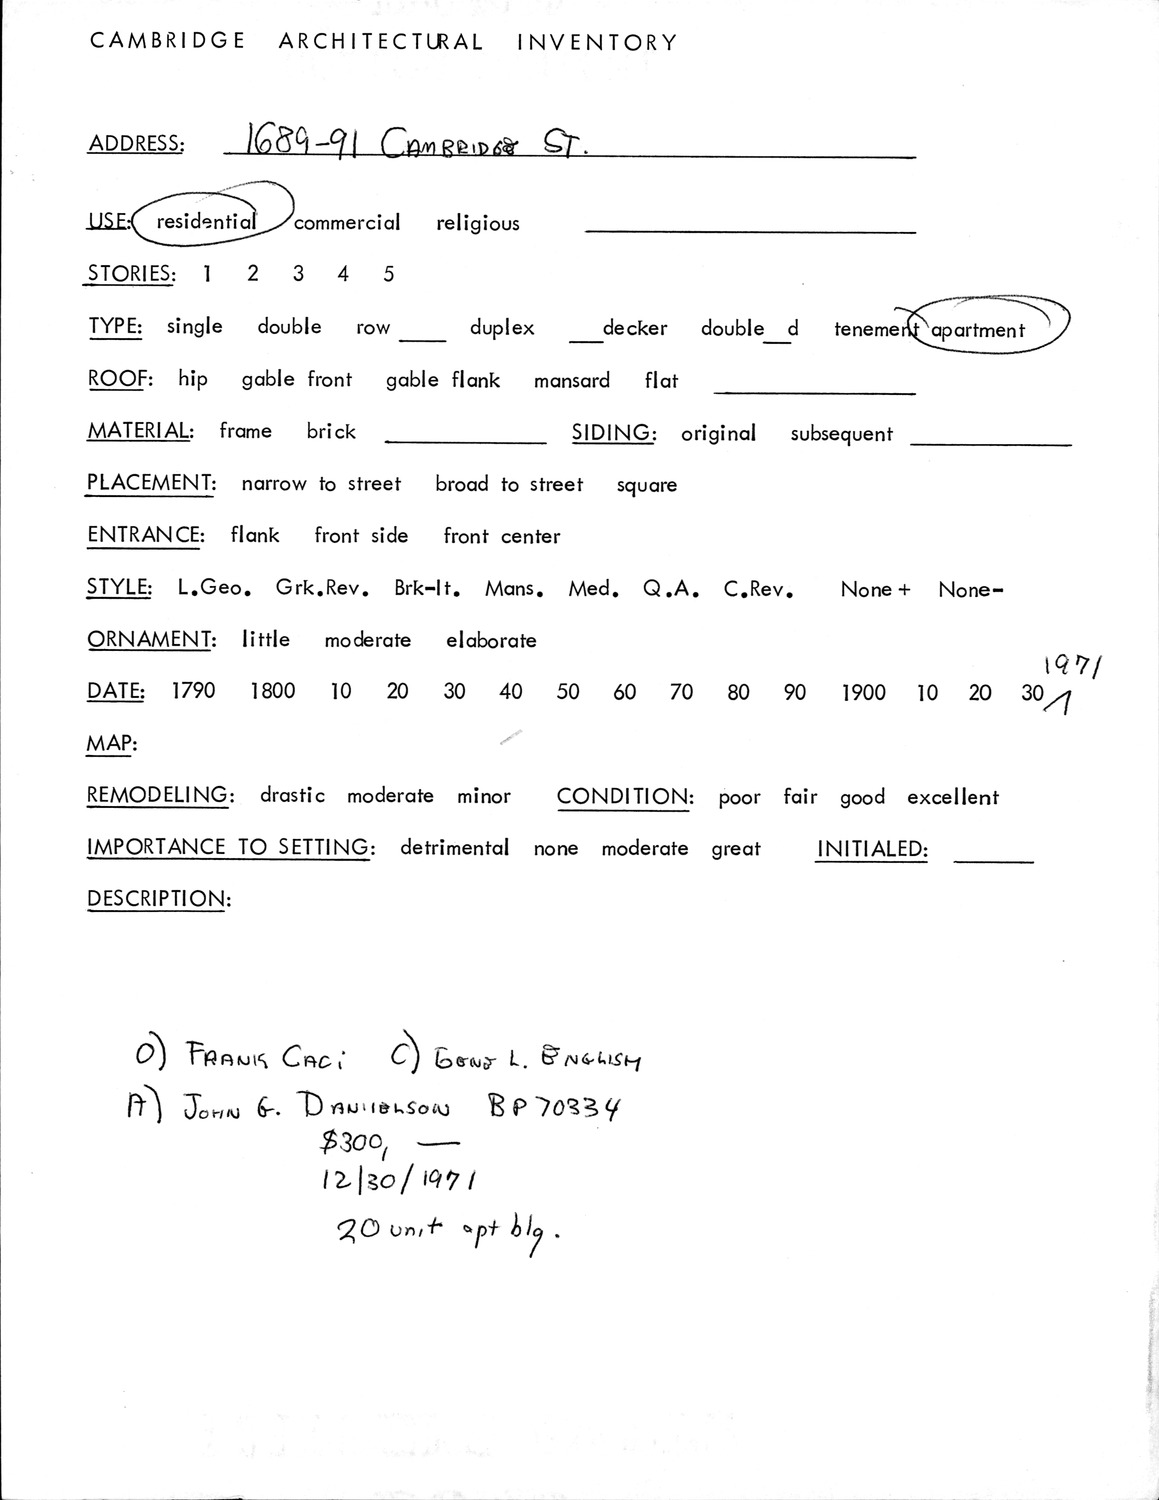 CAMBRIDGE ARCHITECTURAL INVENTORY
ADDRESS: 1689-91 CAMBRIDGE ST.
USE: residential commercial religious
STORIES: 1 2 3 4 5
TYPE: single double row ____ duplex ___decker double__d tenement apartment
ROOF: hip gable front gable flank mansard flat
MATERIAL: frame brick SIDING: original subsequent
PLACEMENT: narrow to street broad to street square
ENTRANCE: flank front side front center
STYLE: L.Geo. Grk.Rev. Brk-It. Mans. Med. Q.A. C.Rev. None+ None-
ORNAMENT: little moderate elaborate
1971
DATE: 1790 1800 10 20 30 40 50 60 70 80 90 1900 10 20 30
MAP:
REMODELING: drastic moderate minor CONDITION: poor fair good excellent
IMPORTANCE TO SETTING: detrimental none moderate great INITIALED:
DESCRIPTION:
O) FRANK CACi C) L. ENGLISH
A) JOHN G. DANIELSON BP 70334
$300, —
12/30/1971
20 unit apt blg.